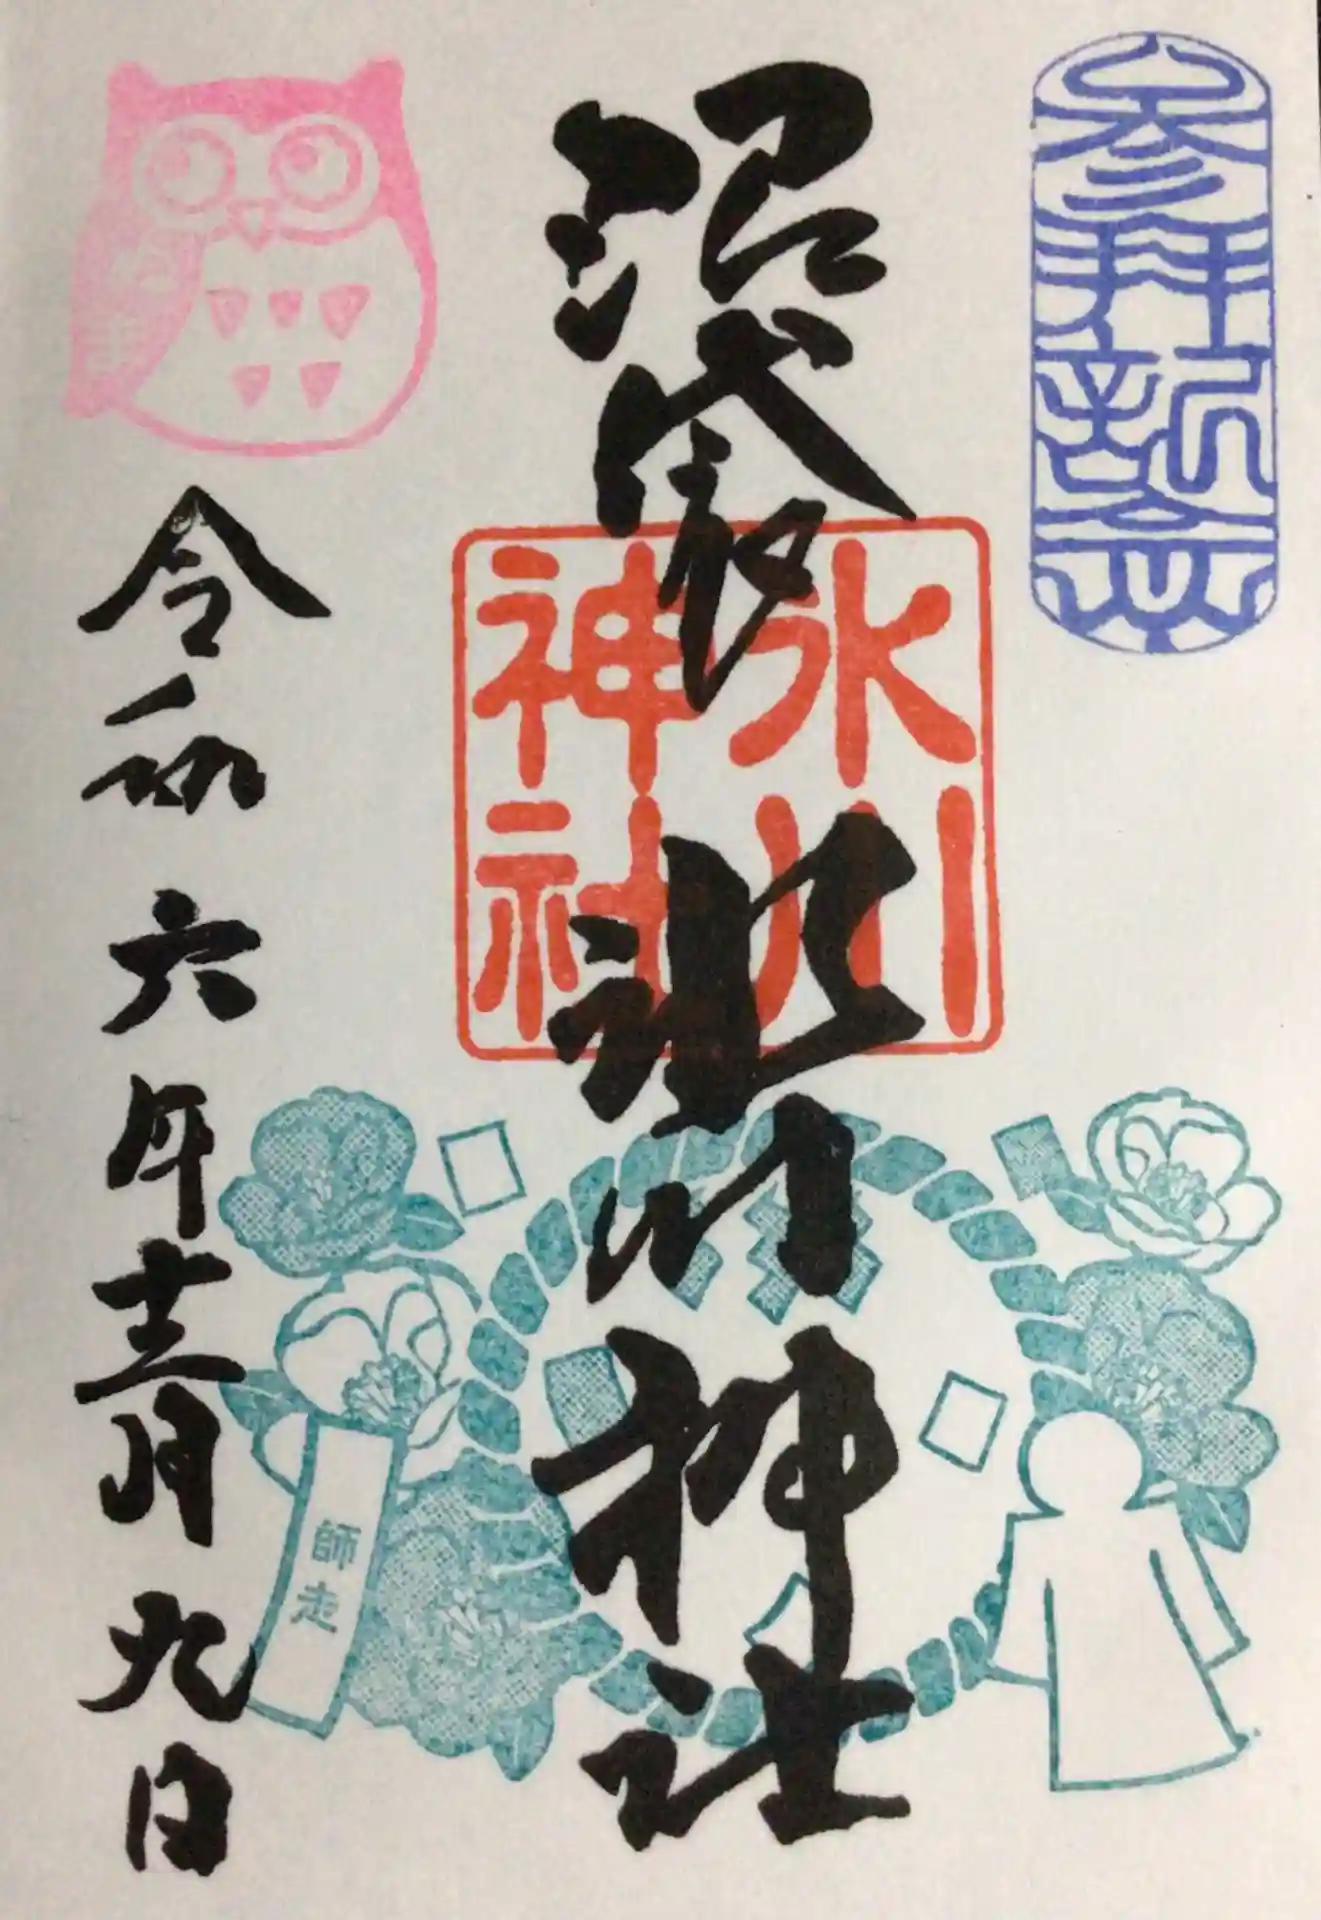 参拝記念
沼袋
氷川神社
氷川
神社
令和六年十二月九日
師走